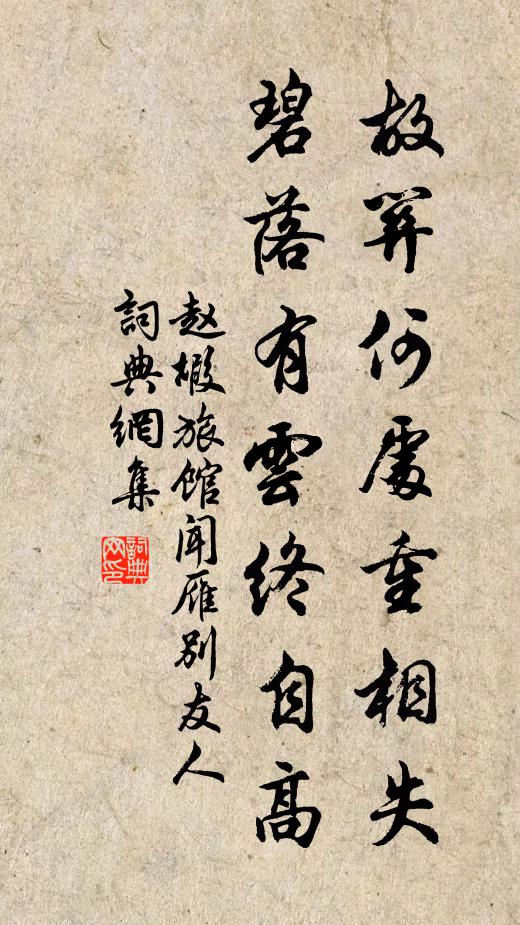 故關何處重相失
碧落有雲終自高
赵椵旅馆闻雁别友人
詞典網集
詞典网印